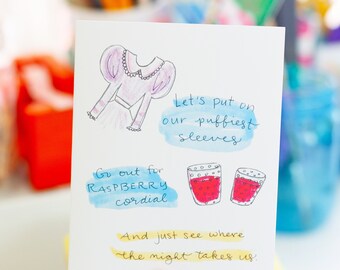 Let's put on
our puffiest
sleeves
Go out for
RASPBERRY
cordial
And just see where
the night takes us.